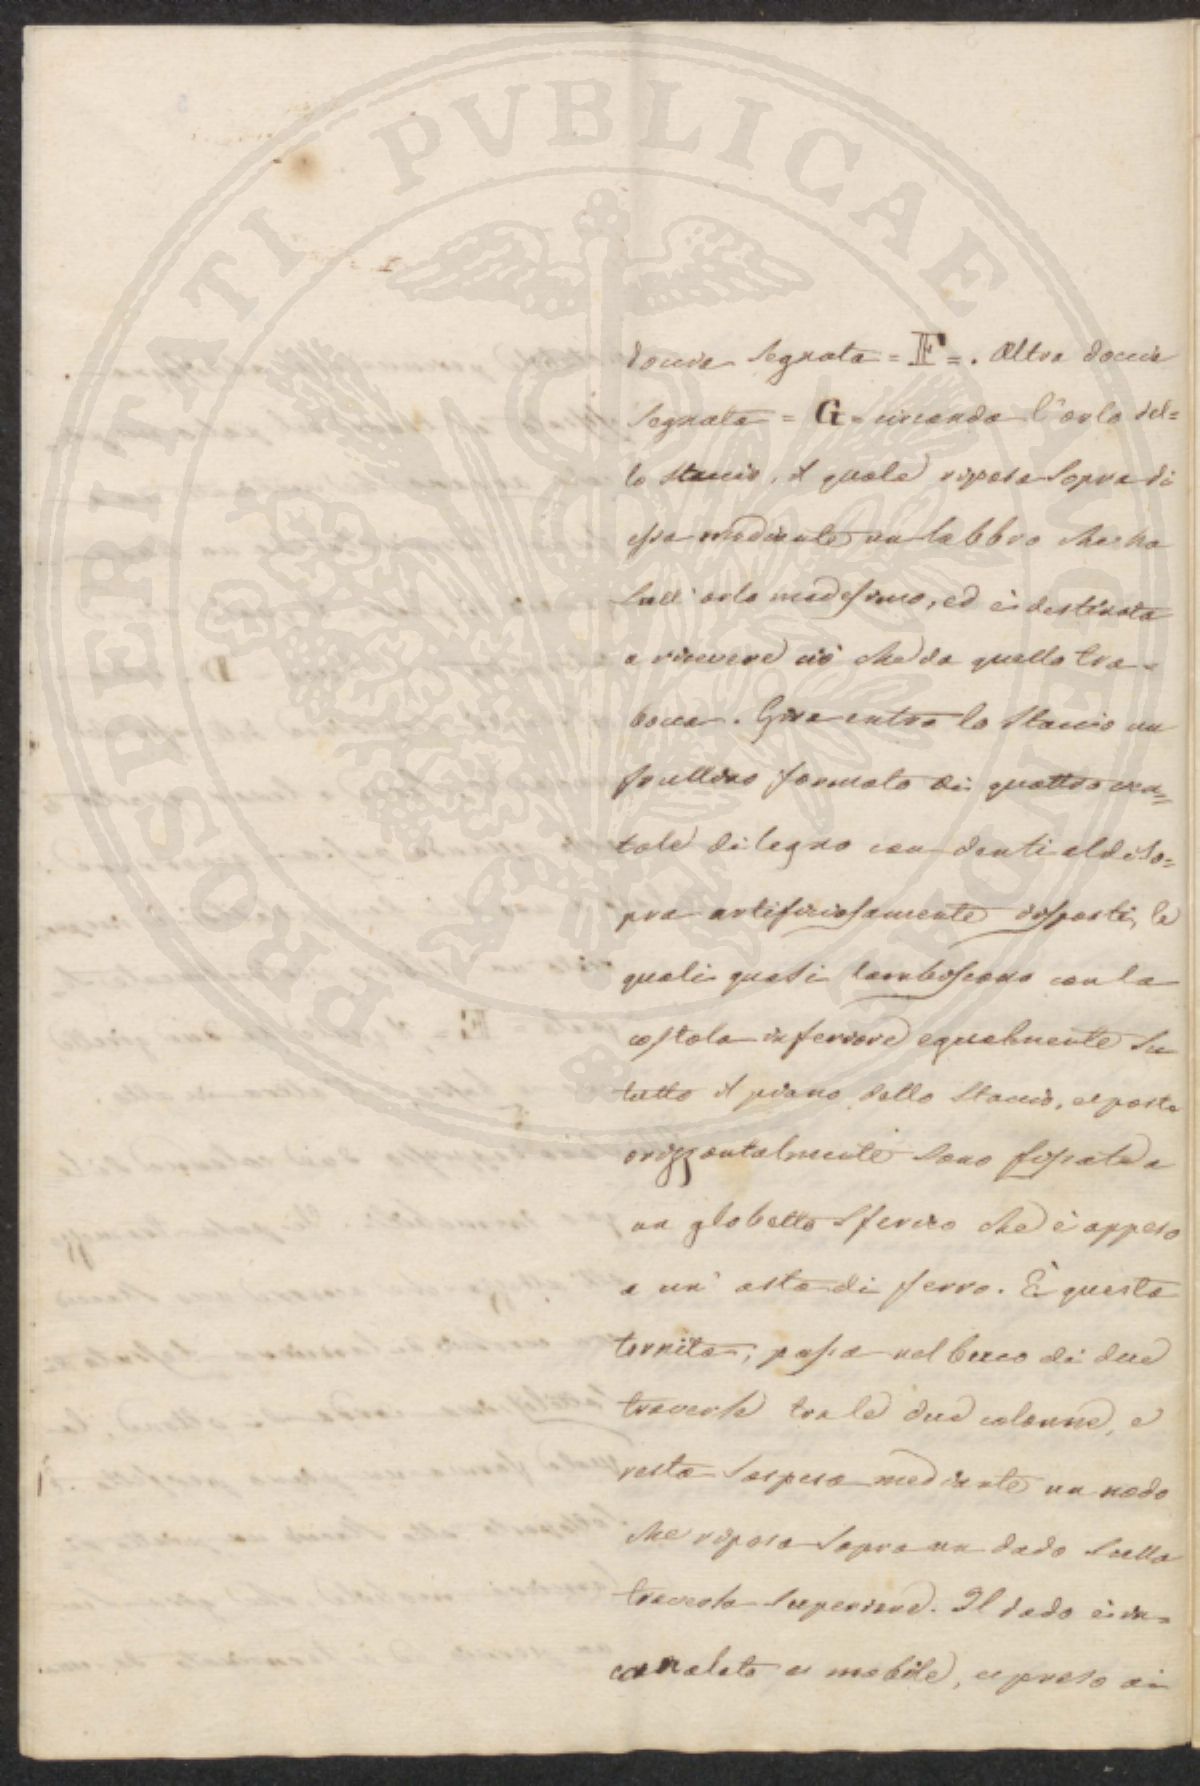 PROSPERITATI PVBLICAE AVGENDAE
doccia segnata = F =. Altra doccia
segnata = G = circonda l'orlo del=
lo staccio, il quale riposa sopra di
essa mediante un labbro che ha
sull'orlo medesimo, ed è destinata
a ricevere ciò che da quello tra=
bocca. Gira entro lo staccio un
frullino formato di quattro cen=
tole di legno con denti al di so=
pra artificiosamente disposti, le
quali quasi lambiscono con la
costola inferiore egualmente su
tutto il piano dello staccio, e poste
orizzontalmente sono fissate a
un globetto sferico che è appeso
a un'asta di ferro. È questa
tornita, passa nel buco di due
traverse tra le due colonne, e
resta sospesa mediante un nodo
che riposa sopra un dado sulla
traversa superiore. Il dado è in=
canalato e mobile, e preso ai